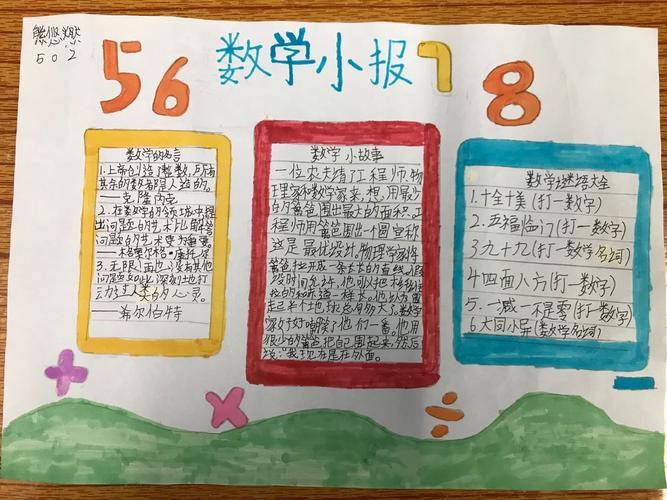 熊悠然
502
56
数学小报
7
8
数学的名言
1.上帝创造了整数,所有
其余的数都是人造的。
——克隆内克
2.在数学的领域中,提
出问题的艺术比解答
问题的艺术更为重要。
——格奥尔格·康托尔
3.无限!再也没有其他
问题如此深刻地打
动过人类的心灵。
——希尔伯特
数学小故事
一位农夫请了工程师,物
理家和数学家来,想用最少
的篱笆围出最大的面积。工
程师用篱笆围出一个圆,宣称
这是最优设计。物理学家将
篱笆拉开成一条长长的直线,假
设时间允许,他可以把
的和赤道一样长。他认为围
起半个地球总够大了。数学
家好好嘲笑了他们一番。他用
很少的篱笆把自己围起来,然后
说:"我现在是在外面。
数学谜语大全
1.十全十美(打一数字)
2.五福临门(打一数字)
3.九十九(打一数学名词)
4.四面八方(打一数字)
5.一减一不是零(打一数字)
6.大同小异(数学名词)
+
×
÷